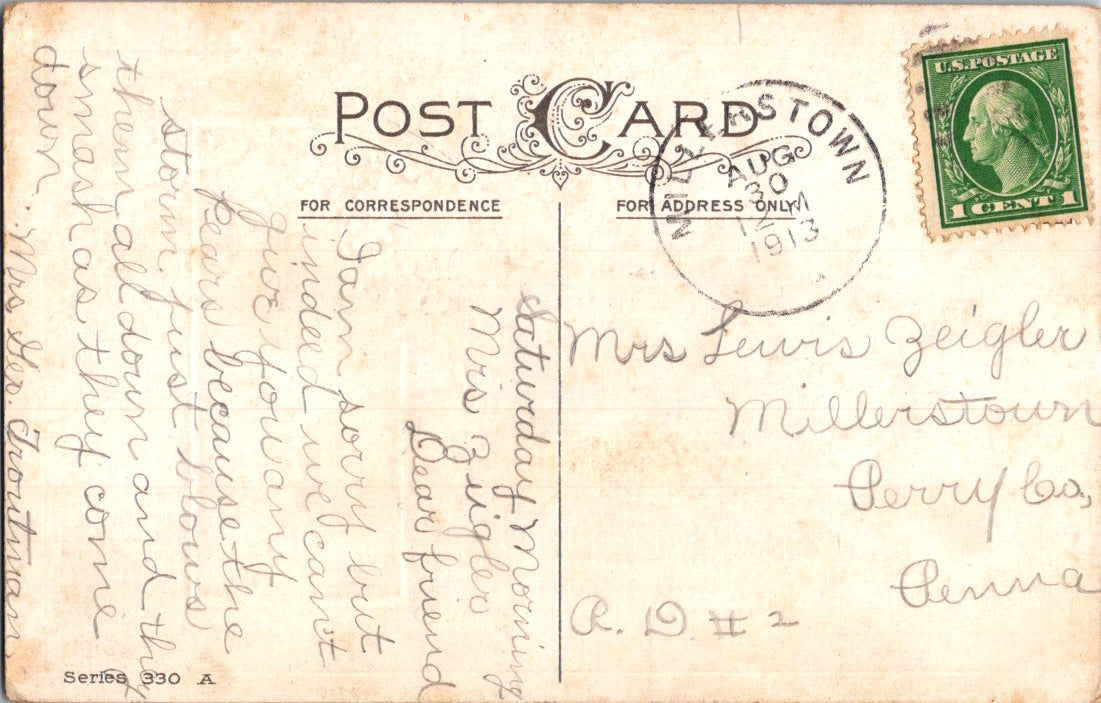 POST CARD
FOR CORRESPONDENCE
FOR ADDRESS ONLY
MILLERSTOWN
AUG
30
12 M
1913
U.S. POSTAGE
1 CENT 1
Saturday Morning
Mis Zeigler
Dear friend
I am sorry but
indeed we can't
give you any
pears because the
storm just blows
them all down and they
smash as they come
down.
Mrs Geo. Troutman
Mrs Lewis Zeigler
Millerstown
Perry Co,
Penna
R. D. # 2
Series 330 A